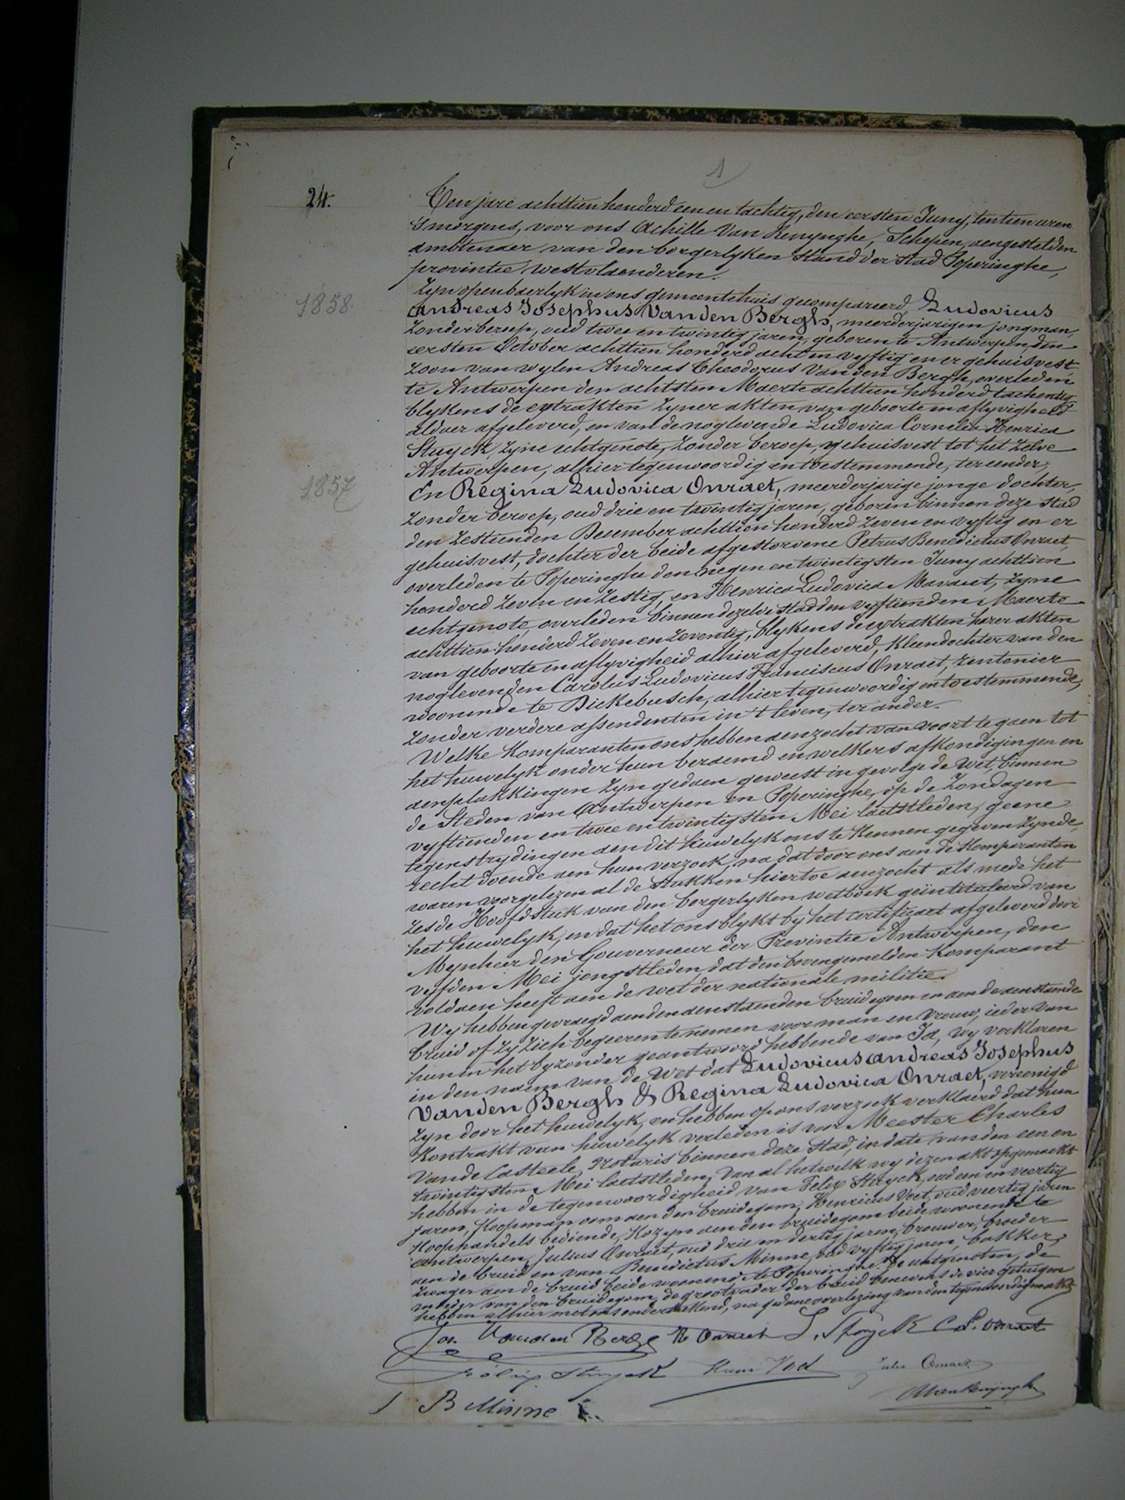 1
24.
Ten jare achttien honderd een en tachtig, den eersten Juny, ten tien uren
'smorgens, voor ons Achille Van Renynghe, Schepen, aengestelden
ambtenaer van den borgerlyken stand der stad Poperinghe,
provintie Westvlaenderen.
Zyn openbaerlyk in ons gemeentehuis gecompareerd Ludovicus
1858
Andreas Josephus Vanden Bergh, meerderjarigen jongman,
zonder beroep, oud twee en twintig jaren, geboren te Antwerpen den
eersten October achttien honderd acht en vyftig en er gehuisvest,
zoon van wylen Andreas Theodorus Vanden Bergh, overleden
te Antwerpen den achtsten Maerte achttien honderd tachentig
blykens de extrakten zyner akten van geboorte en aflyvigheid
aldaer afgeleverd, en van de noglevende Ludovica Cornelia Henrica
Stuyck, zyne echtgenote, zonder beroep, gehuisvest tot het zelve
Antwerpen, alhier tegenwoordig en toestemmende, ter eender;
1857
En Regina Ludovica Onraet, meerderjarige jonge dochter,
zonder beroep, oud drie en twintig jaren, geboren binnen deze stad
den zestienden December achttien honderd zeven en vyftig en er
gehuisvest, dochter der beide afgestorvene Petrus Benedictus Onraet,
overleden te Poperinghe den negen en twintigsten Juny achttien
honderd zeven en zestig, en Henrica Ludovica Mavaut, zyne
echtgenote, overleden binnen dezelve stad den vyftienden Maerte
achttien honderd zeven en zeventig, blykens de extrakten harer akten
van geboorte en aflyvigheid alhier afgeleverd, kleindochter van den
noglevenden Carolus Ludovicus Franciscus Onraet, rentenier
woonende te Dickebusch, alhier tegenwoordig en toestemmende,
zonder verdere assendenten in 't leven, ter ander.
Welke komparanten ons hebben aenzocht van voort te gaen tot
het huwelyk onder hun beraemd en welkers afkondigingen en
aenplakkingen zyn gedaen geweest in gevolge de wet, binnen
de steden van Antwerpen en Poperinghe, op de zondagen
vyftienden en twee en twintigsten Mei laetstleden, geene
tegenstrydingen aen dit huwelyk ons te kennen gegeven zynde,
recht doende aen hun verzoek, na dat door ons aen de komparanten
waren voorgelezen al de stukken hiertoe aenzocht als mede het
zesde Hoofdstuk van den borgerlyken wetboek geïntituleerd van
het huwelyk, en dat het ons blykt by het certifikaet afgeleverd door
Mynheer den Gouverneur der Provintie Antwerpen, den
vyfden Mei jongstleden, dat den bovengemelden komparant
voldaen heeft aen de wet der nationale militie.
Wy hebben gevraegd aen den aenstaenden bruidegom en aen de aenstaende
bruid of zy zich begeeren te nemen voor man en vrouw, ieder van
hun in het byzonder geantwoord hebbende van Ja, wy verklaren
in den naem van de wet dat Ludovicus Andreas Josephus
Vanden Bergh & Regina Ludovica Onraet, vereenigd
zyn door het huwelyk, en hebben op ons verzoek verklaerd dat hun
kontrakt van huwelyk verleden is voor Meester Charles
Vande Casteele, Notaris binnen deze stad, in date van den een en
twintigsten Mei laetstleden. Van al hetwelk wy dezen akt opgemaekt
hebben in de tegenwoordigheid van Felix Stuyck, oud een en veertig
jaren, koopman, oom aen den bruidegom, Henricus Vret, oud veertig jaren
koophandels bediende, kozyn aen den bruidegom beide woonende te
Antwerpen, Julius Onraet, oud drie en dertig jaren, brouwer, broeder
aen de bruid en van Benedictus Minne, oud vyftig jaren, bakker,
zwager aen de bruid, beide woonende te Poperinghe. De echtgenoten, de
moeder van den bruidegom, de grootvader der bruid benevens de vier getuigen
hebben alhier met ons onderteekend, na gedane voorlezing van den tegenwoordigen akt.
Jos. Vanden Bergh R Onraet L. Stuyck C L. Onraet
Félix Stuyck Jules Onraet
B Minne A Van Renynghe